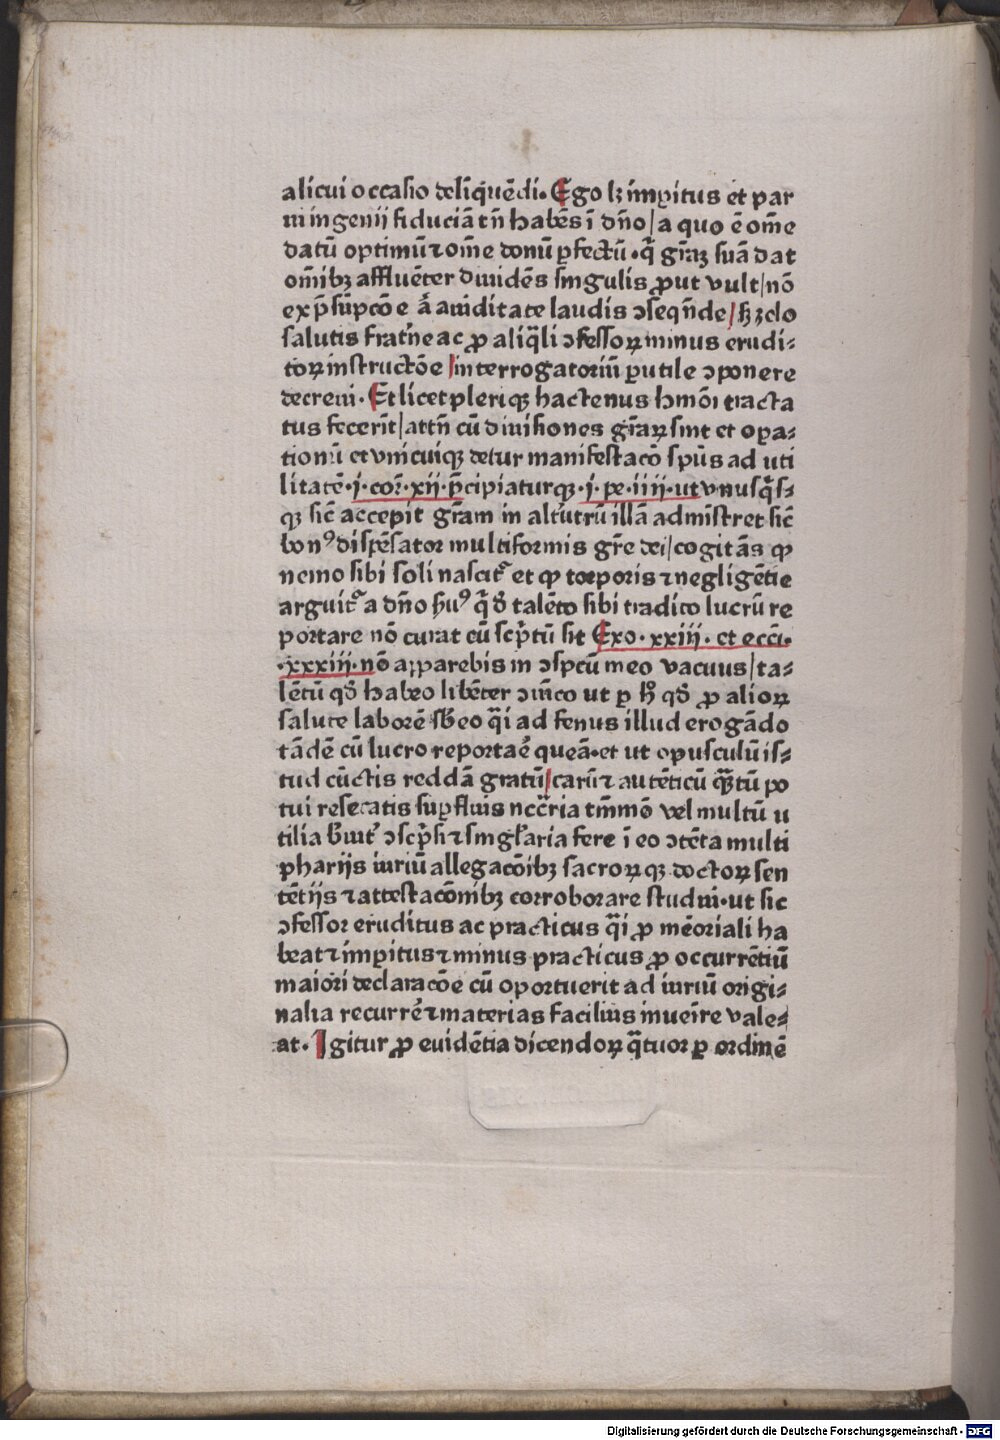 alicui occasio deliq̃uẽdi. Ego lꝫ imꝑitus et par
ui ingenii fiduciã tñ habẽs ĩ dño / a quo ẽ om̃e
datũ optimũ ⁊ om̃e donũ ꝑfectũ . q̃ gr̃aꝫ suã dat
om̃ibꝫ affluẽter diuidẽs singulis ꝓut vult / nõ
ex p̃sũpcõe aͣ auiditate laudis ↄseqñde / sꝫ zelo
salutis frat̾ne ac ꝓ aliq̃li ↄfessoꝝ minus erudi⸗
toꝝ instructõe / interrogatoriũ ꝑutile ↄponere
decreui . Et licet pleriqꝫ hactenus hmõi tracta
tus fecerĩt / attñ cũ diuisiones gr̃aꝝ sint et oꝑa⸗
tionũ et vnicuiqꝫ detur manifestacõ spũs ad uti
litatẽ . j . cor̃ . xij . p̃cipiaturqꝫ . j . pe . iiij . ut vnusq̃s⸗
qꝫ sic̃ accepit gr̃am in alt̾utrũ illã admĩstret sic̃
bonꝰ dispẽsator multiformis gr̃e dei / cogitãs ꝙ
nemo sibi soli nascit᷑ et ꝙ torporis ⁊ negligẽtie
arguit᷑ a dño ẜuꝰ q̃ ꝺ̾ talẽto sibi tradito lucrũ re
portare nõ curat cũ scp̃tũ sit Exo . xxiii . et ecc̃i .
. xxxiij . nõ apparebis in ↄspcũ meo vacuus / ta⸗
lẽtũ qꝺ̾ habeo libẽter ↄmĩco ut ꝑ h̾ qꝺ̾ ꝓ alioꝝ
salute laborẽ sb̾eo q̃i ad fenus illud erogãdo
tãdẽ cũ lucro reportaẽ queã . et ut opusculũ is⸗
tud cũctis reddã gratũ / carũ ⁊ autẽticũ qᷓ̃tũ po
tui resecatis suꝑfluis ncc̃ria tm̃mõ vel multũ u
tilia b̾uit᷑ ↄscp̃si ⁊ singl̾aria fere ĩ eo ↄtẽta multi
pharijs iuriũ allegacõibꝫ sacroꝝqꝫ doctoꝝ sen
tẽtijs ⁊ attestacõnibꝫ corroborare studui . ut sic
ↄfessor eruditus ac practicus q̃i ꝓ mẽoriali ha
beat ⁊ imꝑitus ⁊ minus practicus ꝓ occurrẽtiũ
maiori declaracõe cũ oportuerit ad iuriũ origi⸗
nalia recurrẽ ⁊ materias facilius inueĩre vale⸗
at . Igitur ꝓ euidẽtia dicendoꝝ q̃tuor ꝑ ordinẽ
Digitalisierung gefördert durch die Deutsche Forschungsgemeinschaft - DFG